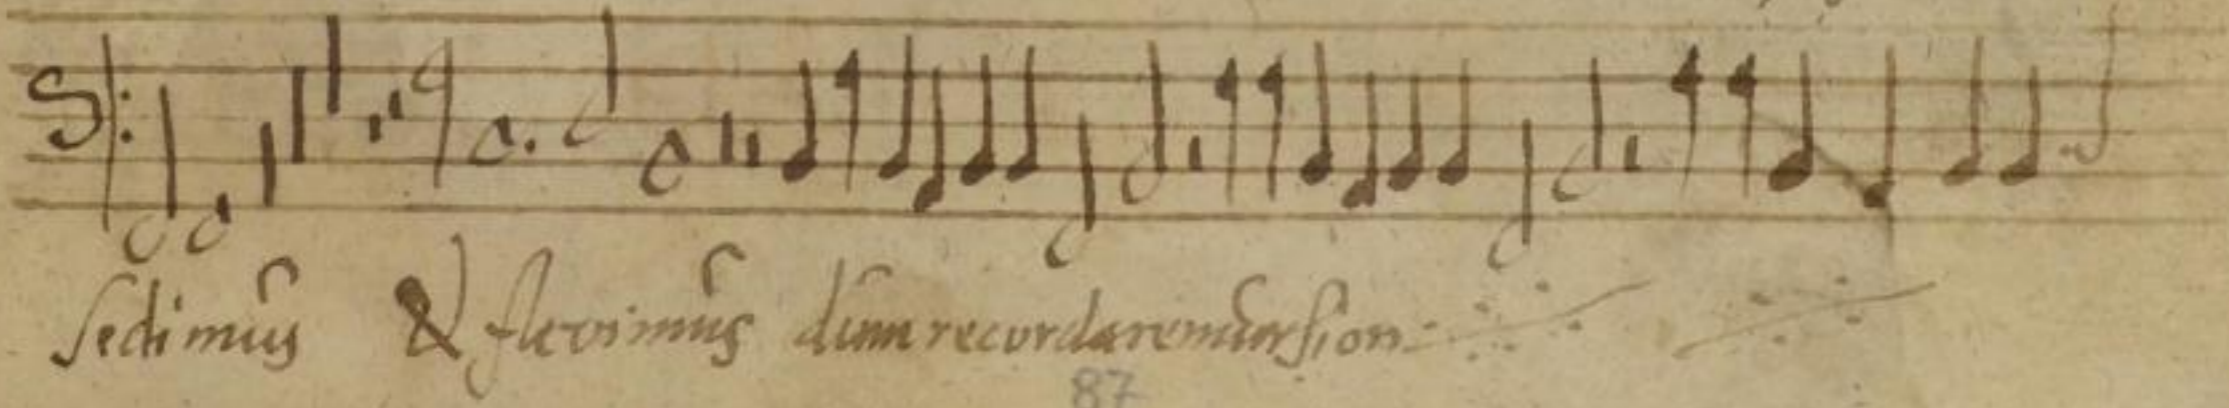 sedimus & flevimus dum recordaremur sion
87